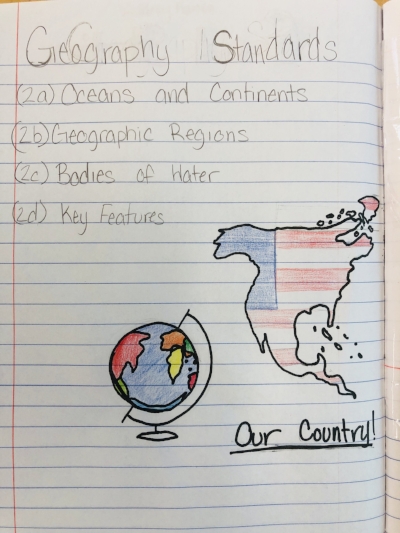 Geography Standards
(2a) Oceans and Continents
(2b) Geographic Regions
(2c) Bodies of Water
(2d) Key Features
Our Country!